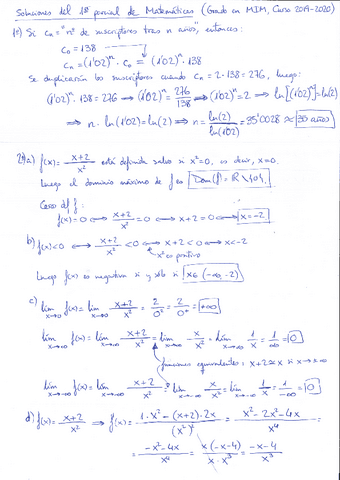 Soluciones del 1er parcial de Matemáticas (Grado en MIM, Curso 2019-2020)
1º) Si cn = "nº de suscriptores tras n años", entonces:
c0 = 138
cn = (1'02)^n · c0 = (1'02)^n · 138
Se duplicarán los suscriptores cuando cn = 2·138 = 276, luego:
(1'02)^n · 138 = 276 ⟹ (1'02)^n = 276/138 ⟹ (1'02)^n = 2 ⟹ ln[(1'02)^n] = ln(2)
⟹ n · ln(1'02) = ln(2) ⟹ n = ln(2)/ln(1'02) = 35'0028 ≈ 35 años
2º) a) f(x) = (x+2)/x² está definida salvo si x²=0, es decir, x=0.
Luego el dominio máximo de f es Dom(f) = ℝ\{0}.
Ceros de f:
f(x)=0 ⟺ (x+2)/x² = 0 ⟺ x+2=0 ⟺ x=-2
b) f(x)<0 ⟺ (x+2)/x² < 0 ⟺ x+2<0 ⟺ x<-2
x² es positivo
Luego f(x) es negativa si y sólo si x∈(-∞,-2)
c) lím x→0 f(x) = lím x→0 (x+2)/x² = 2/0² = 2/0⁺ = +∞
lím x→∞ f(x) = lím x→∞ (x+2)/x² = lím x→∞ x/x² = lím x→∞ 1/x = 1/∞ = 0
funciones equivalentes: x+2≈x si x→±∞
lím x→-∞ f(x) = lím x→-∞ (x+2)/x² = lím x→-∞ x/x² = lím x→-∞ 1/x = 1/-∞ = 0
d) f(x) = (x+2)/x² ⟹ f'(x) = (1·x² - (x+2)·2x)/(x²)² = (x² - 2x² - 4x)/x⁴ =
= (-x² - 4x)/x⁴ = x(-x-4)/(x·x³) = (-x-4)/x³